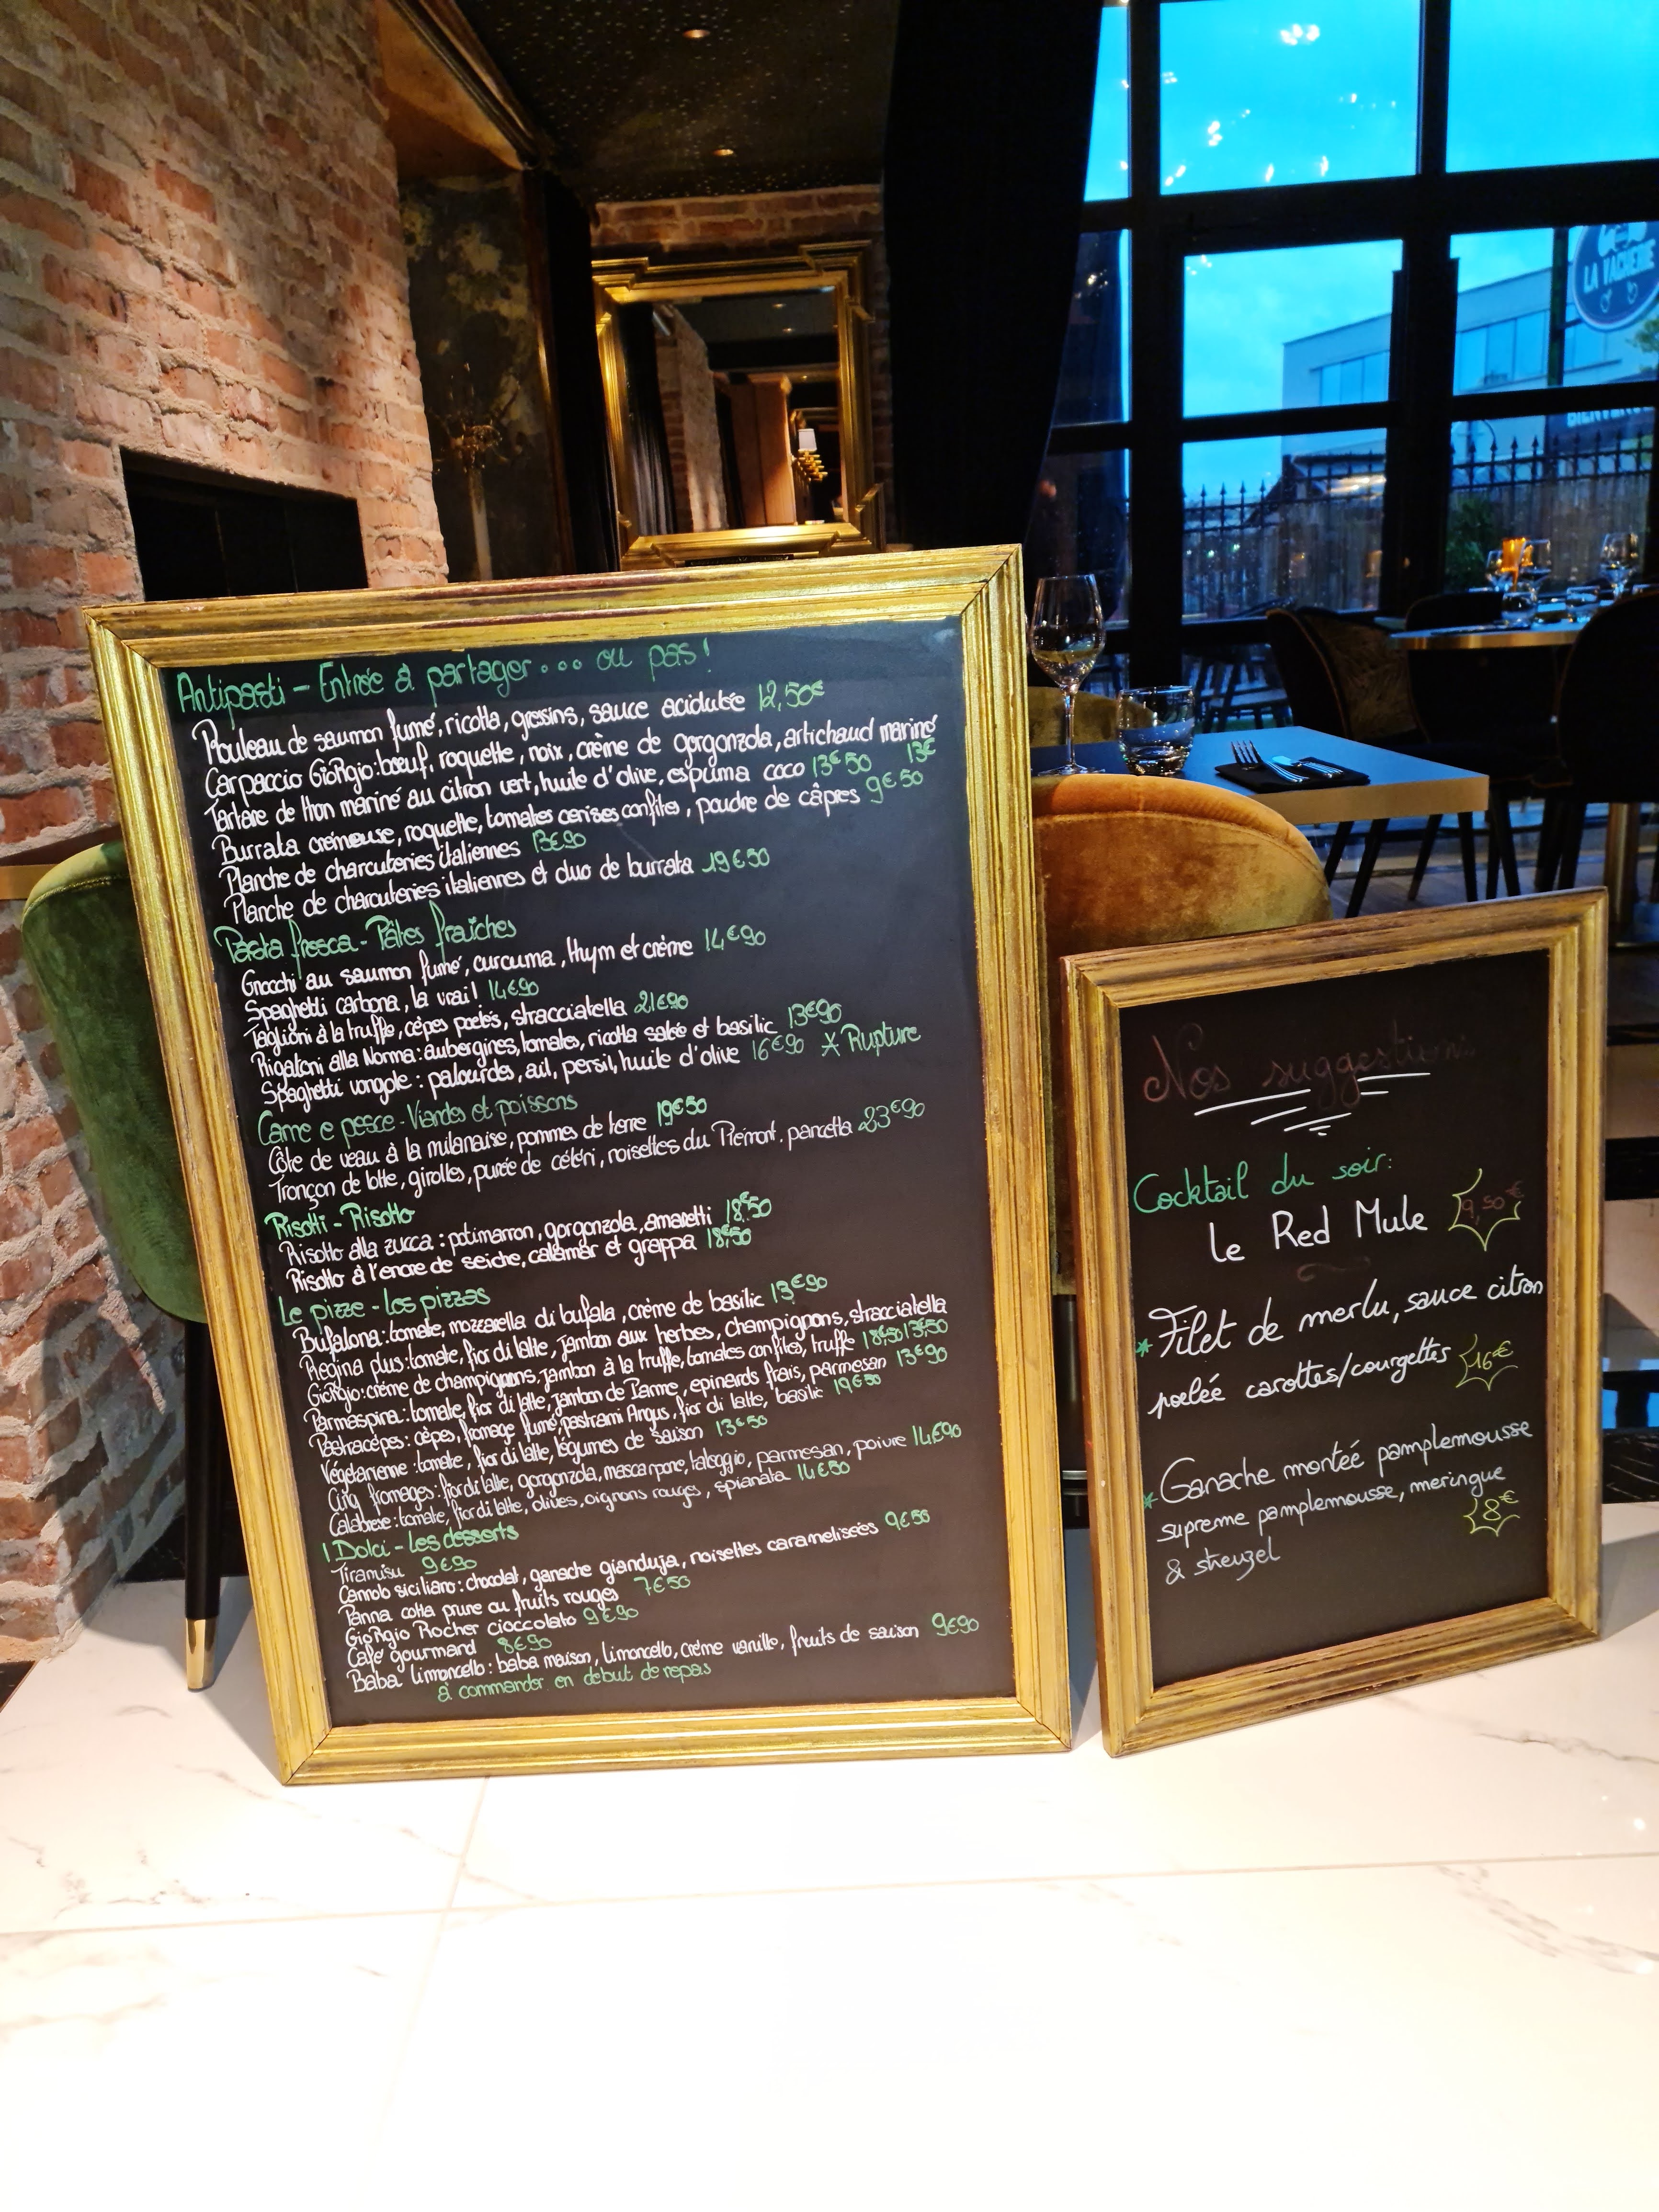 Antipasti - Entrée à partager... ou pas!
Rouleau de saumon fumé, ricotta, gressins, sauce acidulée 12,50€
Carpaccio GioRgio: bœuf, roquette, noix, crème de gorgonzola, artichaud mariné 13€
Tartare de thon mariné au citron vert, huile d'olive, espuma coco 13€50
Burrata crémeuse, roquette, tomates cerises confites, poudre de câpres 9€50
Planche de charcuteries italiennes 13€90
Planche de charcuteries italiennes et duo de burrata 19€50
Pasta fresca - Pâtes fraîches
Gnocchi au saumon fumé, curcuma, thym et crème 14€90
Spaghetti carbona, la vrai! 14€90
Taglioni à la truffe, cèpes poelés, stracciatella 21€90
Rigatoni alla Norma: aubergines, tomates, ricotta salée et basilic 13€90
Spaghetti vongole: palourdes, ail, persil, huile d'olive 16€90 * Rupture
Carne e pesce - Viandes et poissons
Côte de veau à la milanaise, pommes de terre 19€50
Tronçon de lotte, girolles, purée de céleri, noisettes du Piémont, pancetta 23€90
Risotti - Risotto
Risotto alla zucca: potimarron, gorgonzola, amaretti 18€50
Risotto à l'encre de seiche, calamar et grappa 18€50
Le pizze - Les pizzas
Bufalona: tomate, mozzarella di bufala, crème de basilic 13€90
Regina plus: tomate, fior di latte, jambon aux herbes, champignons, stracciatella 13€50
GioRgio: crème de champignons, jambon à la truffe, tomates confites, truffe 18€50
Parmaspina: tomate, fior di latte, jambon de Parme, epinards frais, parmesan 13€90
Pastracèpes: cèpes, fromage fumé, pastrami Angus, fior di latte, basilic 19€50
Végétarienne: tomate, fior di latte, légumes de saison 13€50
Cinq fromages: fior di latte, gorgonzola, mascarpone, taleggio, parmesan, poivre 14€90
Calabrese: tomate, fior di latte, olives, oignons rouges, spianata 14€50
I Dolci - Les desserts
Tiramisu 9€90
Cannolo siciliano: chocolat, ganache gianduja, noisettes caramelisées 9€50
Panna cotta prune ou fruits rouges 7€50
GioRgio Rocher cioccolato 9€90
Café gourmand 8€90
Baba limoncello: baba maison, limoncello, crème vanille, fruits de saison 9€90
à commander en début de repas
Nos suggestions
Cocktail du soir:
le Red Mule 9,50€
* Filet de merlu, sauce citron
poelée carottes/courgettes 16€
* Ganache montée pamplemousse
supreme pamplemousse, meringue
& streuzel 8€
LA VACHERIE